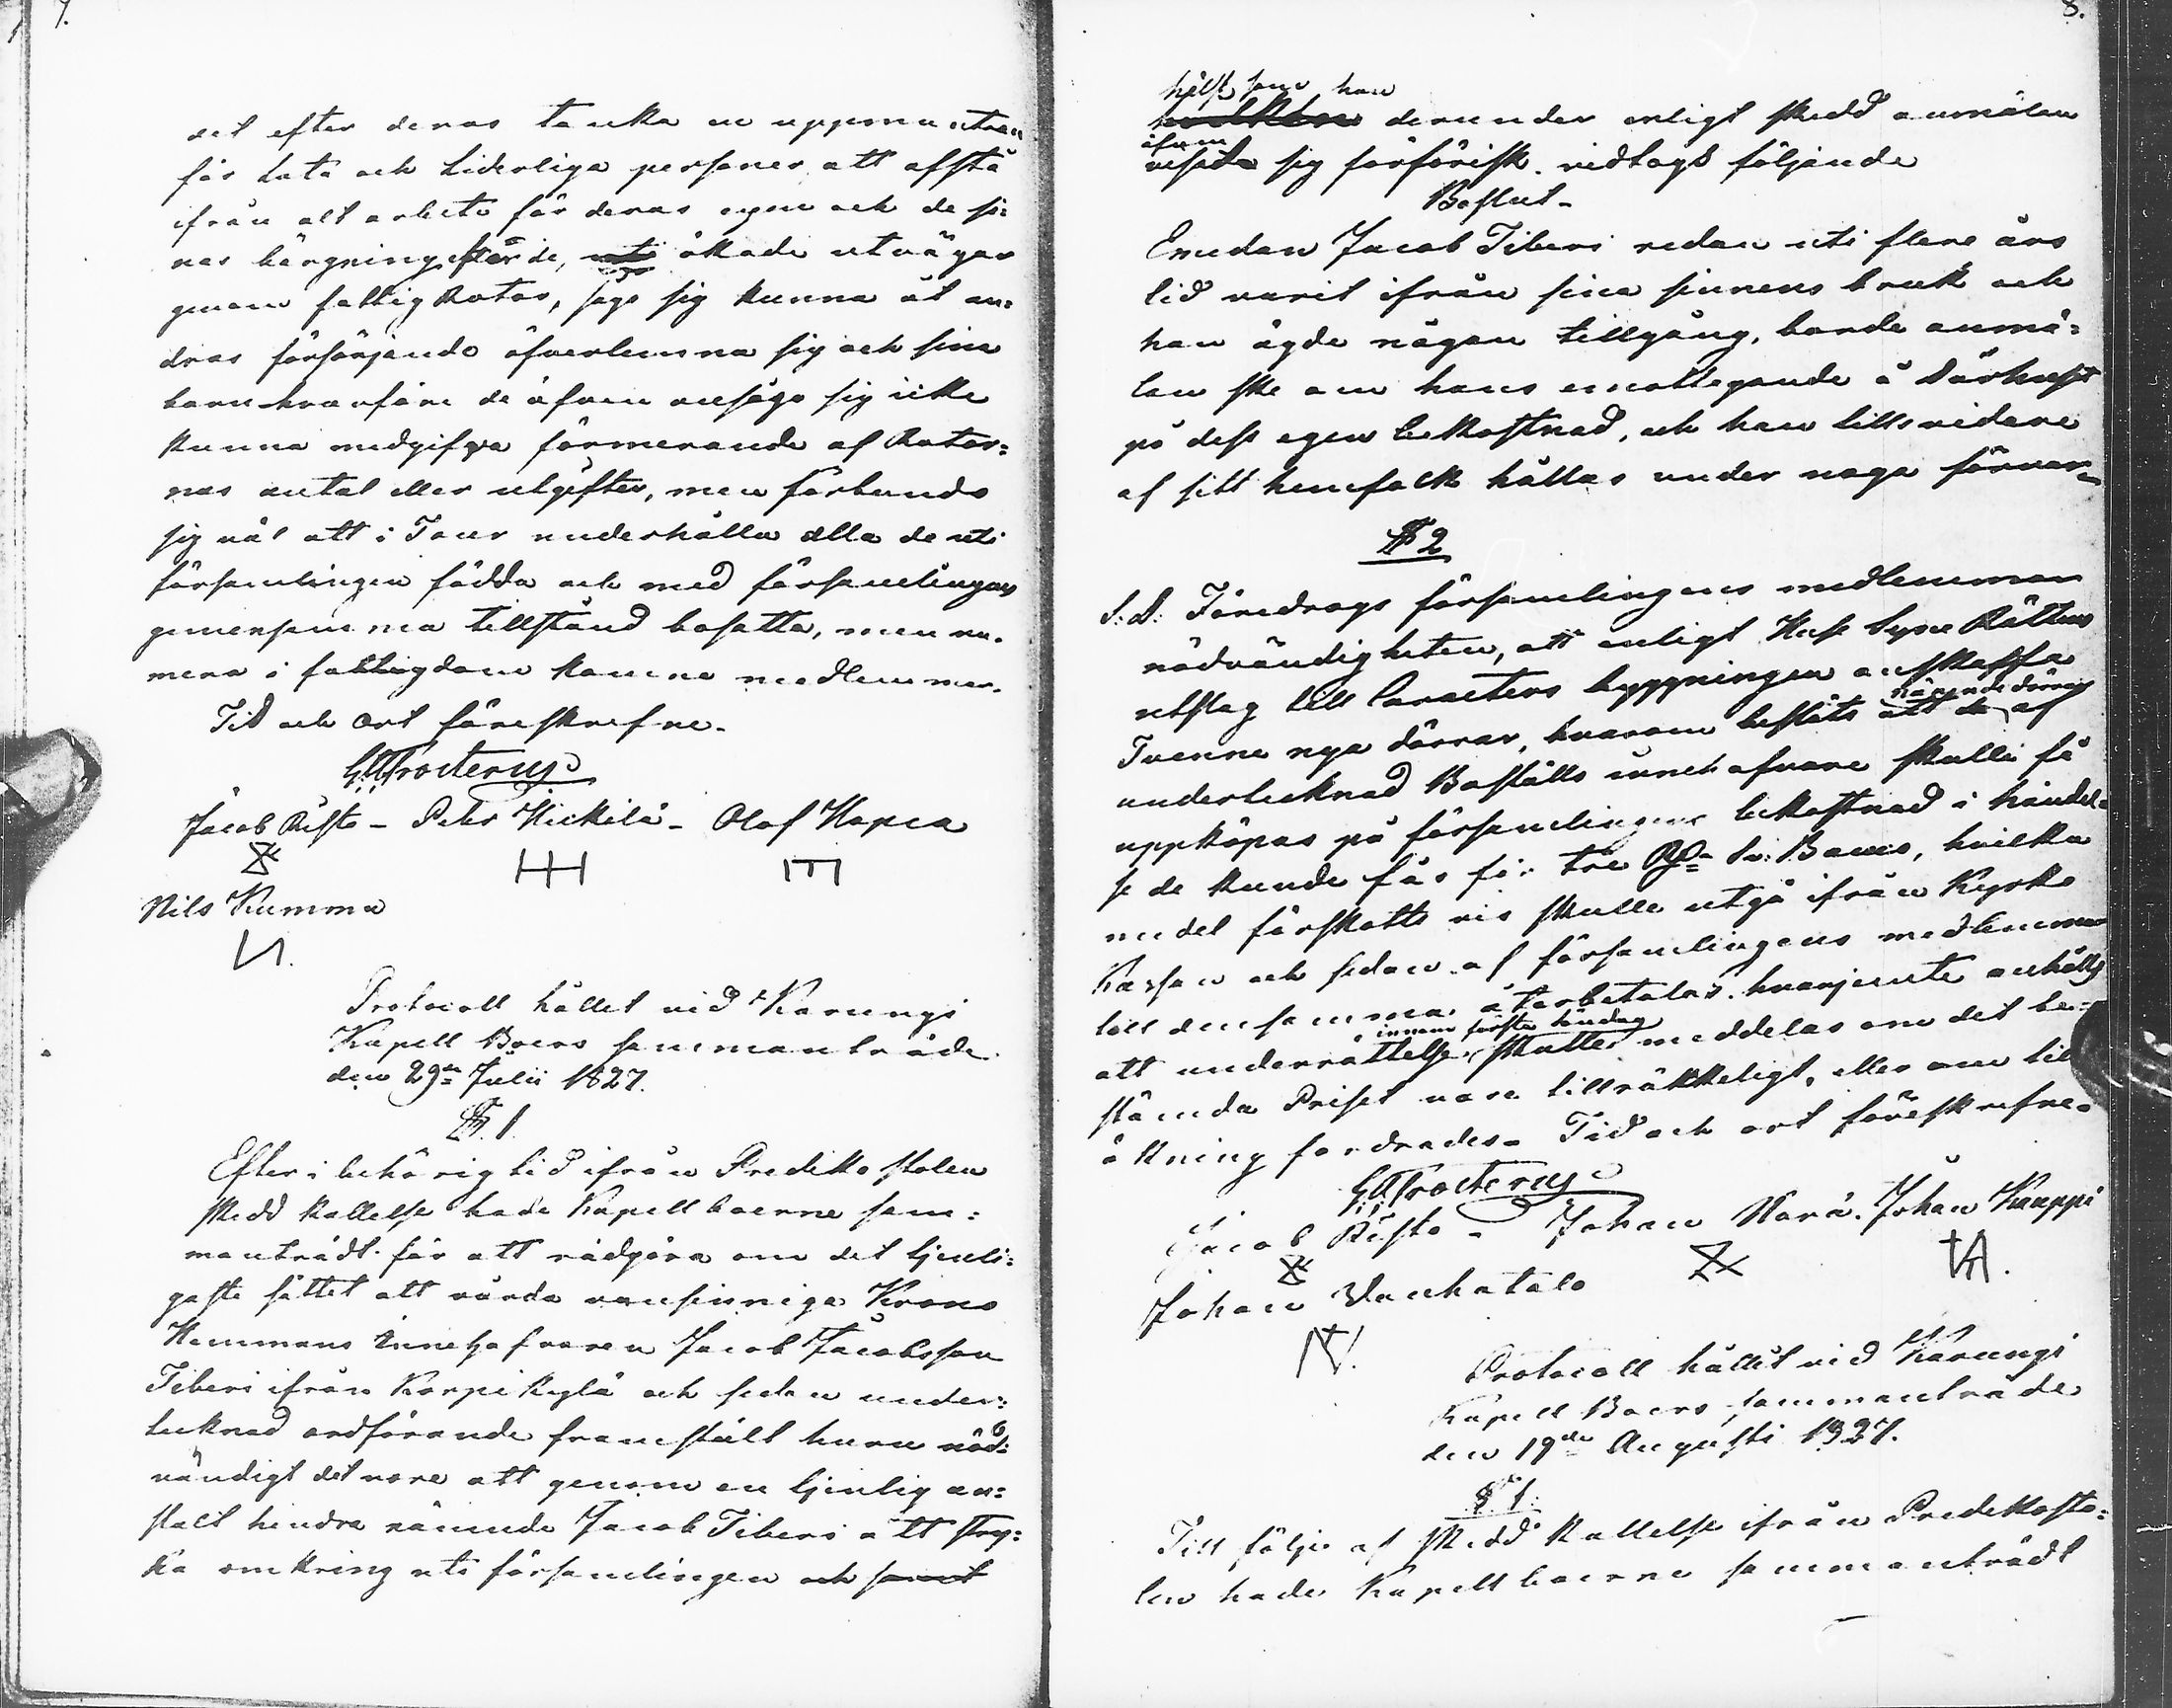 7.
det efter deras tanka en uppmuntran
för lata och liderliga personer att afstå
ifrån alt arbete för deras egen och de si:
nas bärgning efter de, ökade utvägar
genom fattig Rotar, sågo sig kunna åt an:
dras försörjande öfverlemna sig och sina
barn hvarföre de äfven ansågo sig icke
kunna medgifva förmerande af Rotar:
nas antal eller utgifter, men förbundo
sig väl att i Tour underhålla alla de uti
församlingen födda och med församlingens
gemensamma tillstånd bosatta, men nu-
mera i fattigdom komne medlemmar.
Tid och ort föreskrefne.
Jacob Risto - Petr Heikilä - Olof Hapea
Nils Kumma
Protocoll hållet vid Karungi
Kapell Boers sammanträde
den 29de Julii 1827.
§. 1.
Efter i behörig tid ifrån Prediko stolen
skedd kallelse hade Kapell boerne sam:
manträdt för att rådgöra om det tjenli:
gaste sättet att vårda vansinniga Krono
Hemmans Innehafvaren Jacob Jacobsson
Tiberi ifrån Karpikylä och sedan under:
tecknad ordförande framstält huru nöd:
vändigt det vore att genom en tjenlig an:
stalt hindra nämnde Jacob Tiberi att stry:
ka omkring uti församlingen och samt
8.
hälst som han
derunder enligt skedd anmälan
äfven
visat sig förförisk. vidtogs följande
Beslut-
Emedan Jacob Tiberi redan uti flere års
tid varit ifrån sina sinnens bruk och
han ägde någon tillgång, borde anmä:
lan ske om hans emottagande å Dårhuset
på dess egen bekostnad, och han tills vidare
af sitt hemfolk hållas under noga förvar-
§ 2
S. D. Föredrogs församlingens medlemmar
nödvändigheten, att enligt Huse Syne Rättens
utslag till Caracters byggningen anskaffa
nämnde dörrar
Tvenne nya dörrar, hvarom beslöts att af
undertecknad Boställs innehafvare skulle få
uppköpas på församlingens bekostnad i händel-
se de kunde fås för tre Rd Sv: Banco, hvilka
medel förskotts vis skulle utgå ifrån Kyrko
Kassan och sedan af församlingens medlemmar
till densamma återbetalas. hvarjemte anhölls
innom första söndag
att underrättelse skulle meddelas om det be:
stämda Priset vore tillräkkeligt, eller om till
ökning fordrades. Tid och ort föreskrefne.
Jacob Risto - Johan Karä. Johan Kauppi
Johan Vanhatalo
Protocoll hållit vid Karungi
Kapell Boers sammanträde
den 19de Augusti 1827.
§ 1.
Till följe af skedd kallelse ifrån Predikosto:
len hade Kapell boerne sammanträdt